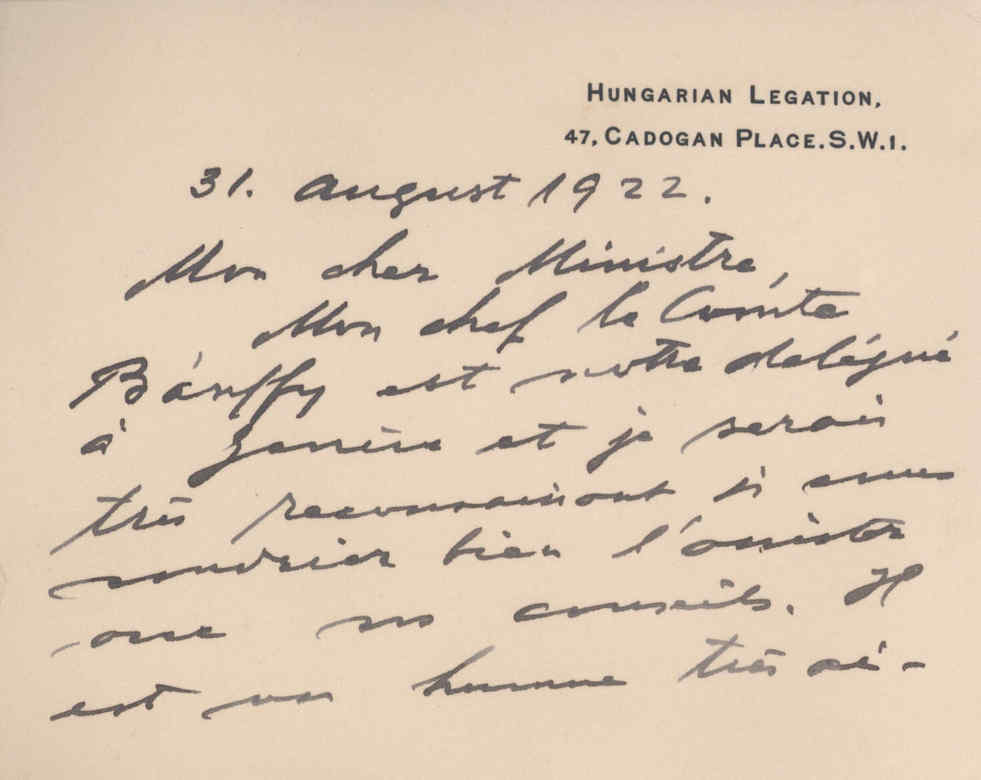 HUNGARIAN LEGATION,
47, CADOGAN PLACE. S.W.1.
31. august 1922.
Mon cher Ministre,
Mon chef le Comte
Bánffy est notre delégué
à Genève et je serais
très reconnaissant si vous
voudriez bien l'assister
avec vos conseils. Il
est un homme très sé-